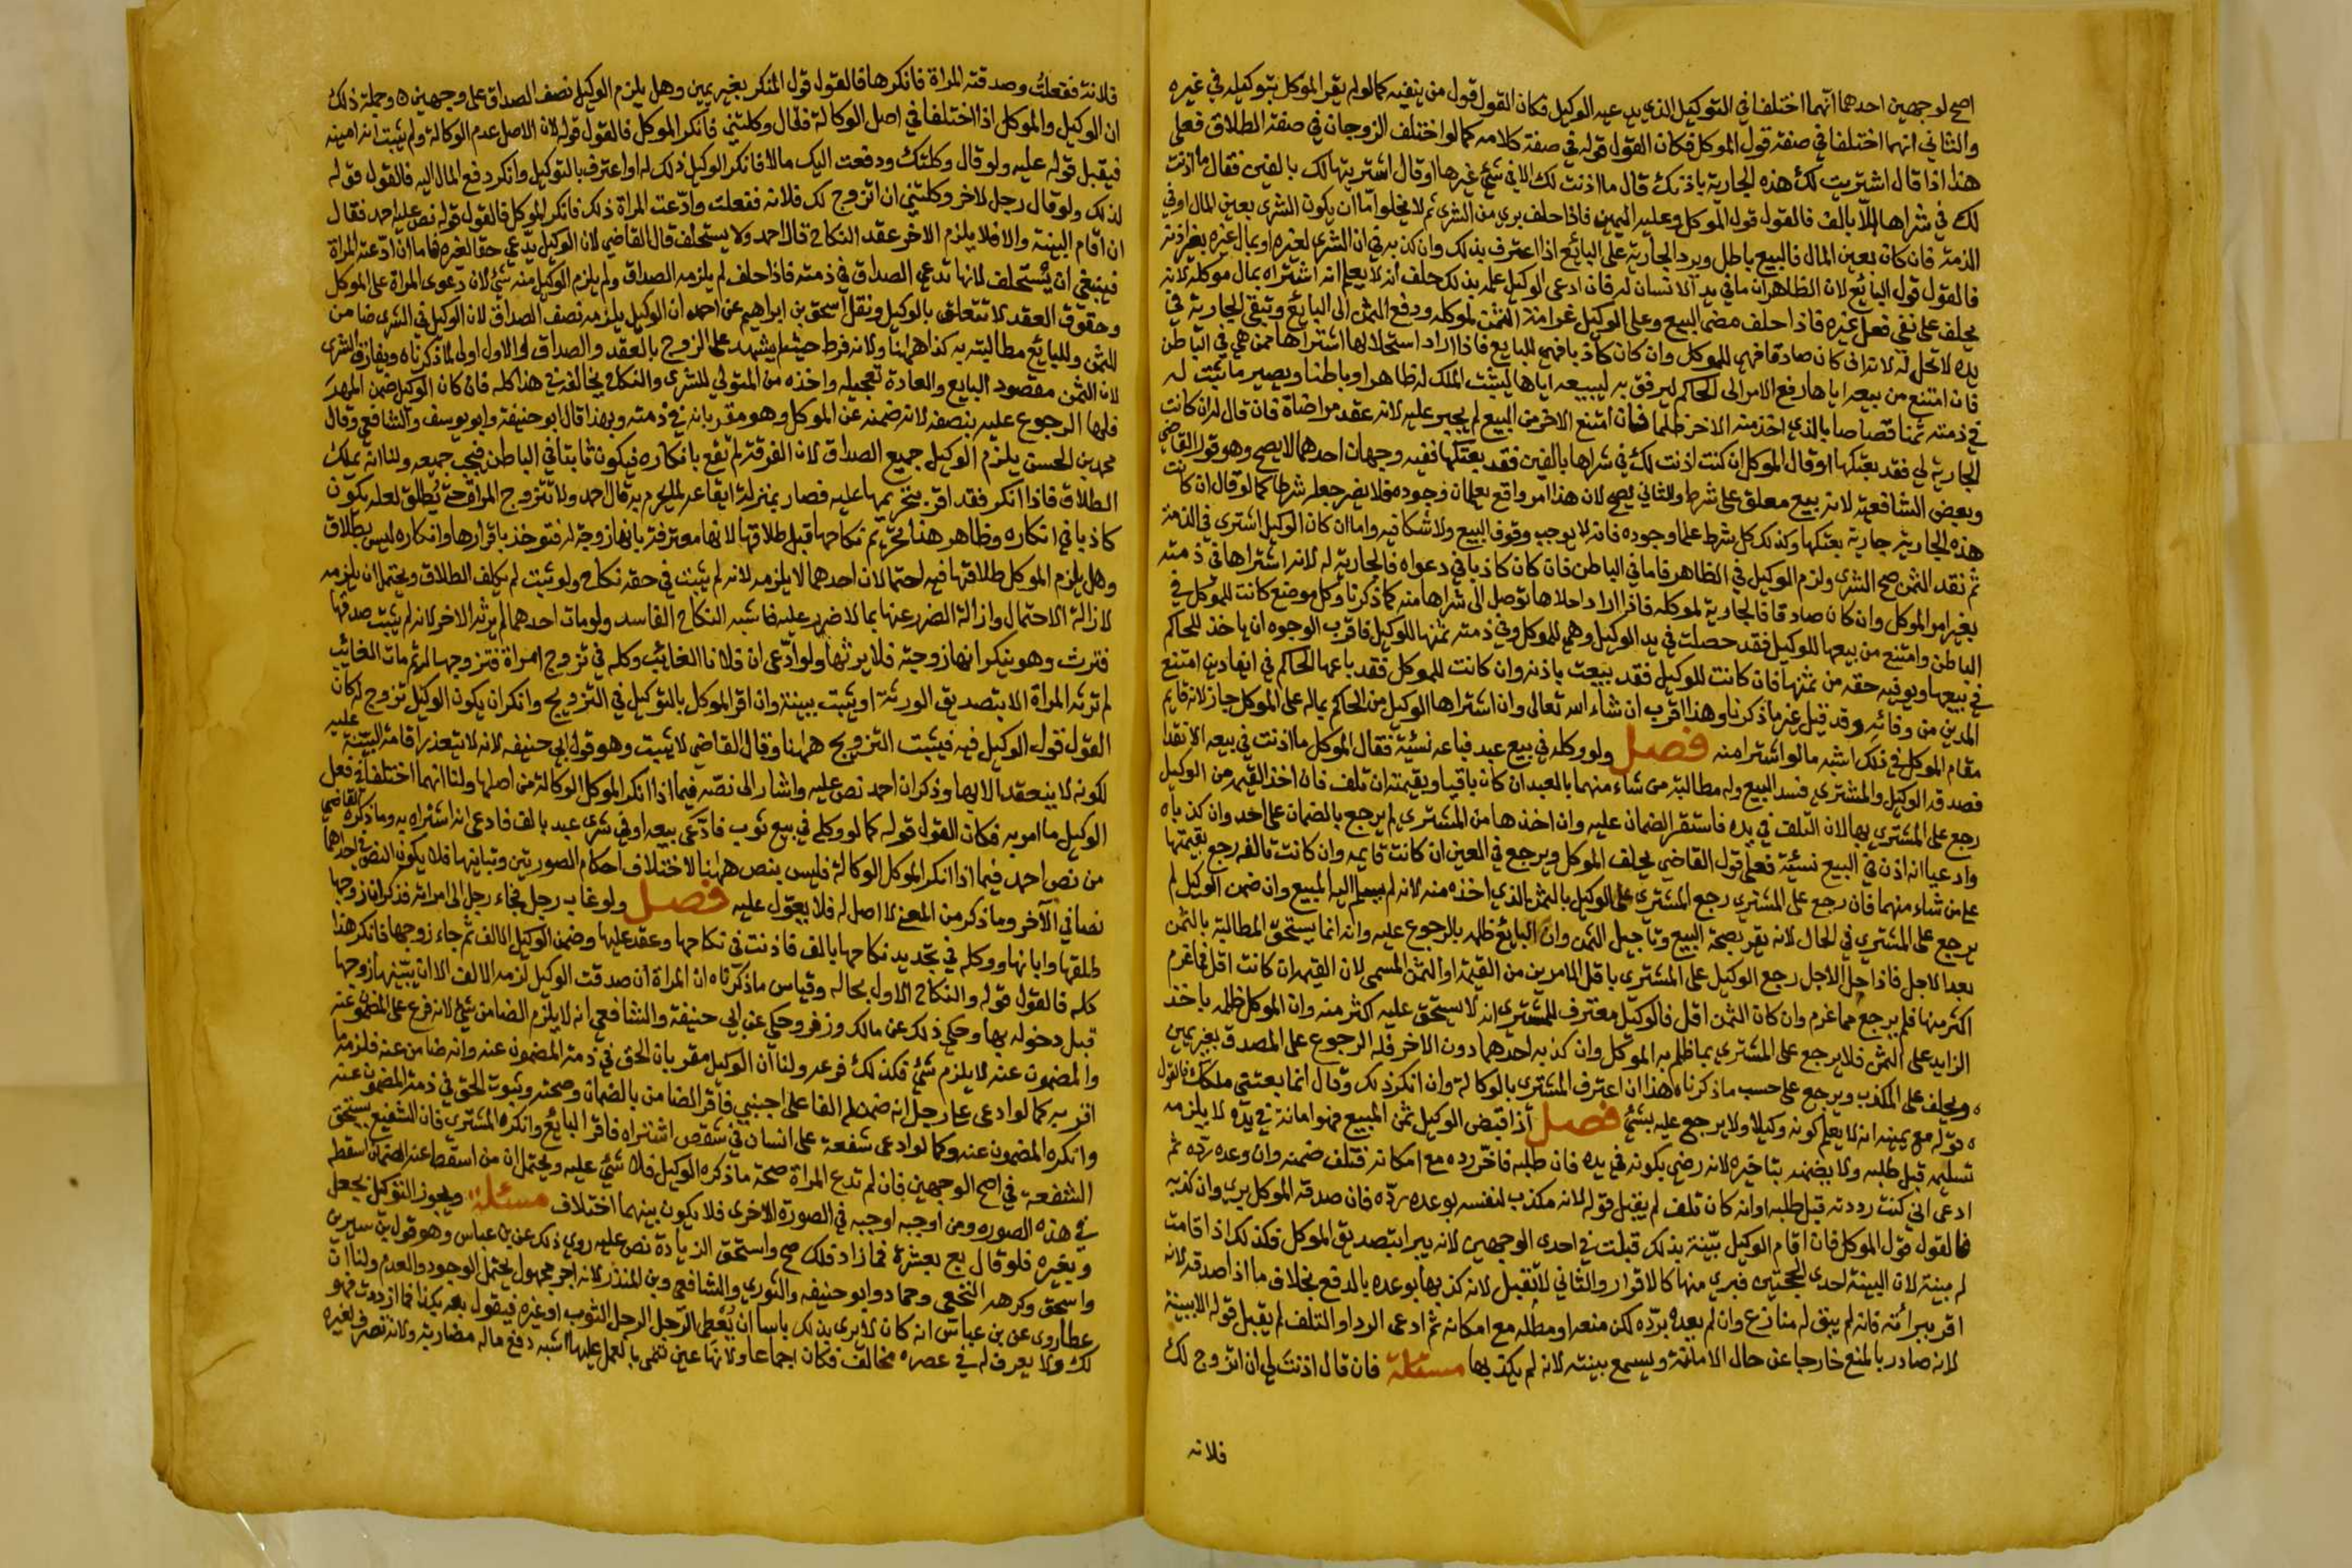 اصح لوجهين احدهما انهما اختلفا في التوكيل الذي يدعيه الوكيل فكان القول قول من ينفيه كما لو لم يقر الموكل بتوكيله في غيره
والثاني انهما اختلفا في صفة قول الموكل فكان القول قوله في صفة كلامه كما لو اختلف الزوجان في صفة الطلاق فعلى
هذا اذا قال اشتريت لك هذه الجارية باذنك قال ما اذنت لك الا في شئ غيرها او قال اشتريتها لك بالفين فقال ما اذنت
لك في شراها الا بالف فالقول قول الموكل وعليه اليمين فاذا حلف بري من الشرى ثم لا يخلوا اما ان يكون الشرى بعين المال او في
الذمة فان كان بعين المال فالبيع باطل ويرد الجارية على البائع اذا اعترف بذلك وان كذبه في ان الشرى لغيره او بمال غيره بغير اذنه
فالقول قول البائع لان الظاهر ان ما في يد الانسان له فان ادعى الوكيل علمه بذلك حلف انه لا يعلم انه اشتراه بمال موكله لانه
يحلف على نفي فعل غيره فاذا حلف مضى البيع وعلى الوكيل غرامة الثمن لموكله ودفع الثمن الى البائع وتبقى الجارية في
يده لا تحل له لانه ان كان صادقا فهي للموكل وان كان كاذبا فهي للبايع فاذا اراد استحلالها اشتراها ممن هي في الباطن
فان امتنع من بيعه اياها رفع الامر الى الحاكم ليرفق به ليبيعه اياها ليثبت الملك له ظاهرا وباطنا ويصير ما ثبت له
في ذمته ثمنا قصاصا بالذي اخذ منه الاخر ظلما فان امتنع الاخر من البيع لم يجبر عليه لانه عقد مراضاة فان قال له ان كانت
الجارية لي فقد بعتكها او قال الموكل ان كنت اذنت لك في شراها بالفين فقد بعتكها ففيه وجهان احدهما لا يصح وهو قول القاضي
وبعض الشافعية لانه بيع معلق على شرط والثاني يصح لان هذا امر واقع يعلمان وجوده فلا يضر جعله شرطا كما لو قال ان كانت
هذه الجارية جارية بعتكها وكذلك كل شرط علما وجوده فانه لا يوجب وقوف البيع ولا شكا فيه واما ان كان الوكيل اشترى في الذمة
ثم نقد الثمن صح الشرى ولزم الوكيل في الظاهر فاما في الباطن فان كان كاذبا في دعواه فالجارية له لانه اشتراها في ذمته
بغير امر الموكل وان كان صادقا فالجارية لموكله فاذا اراد احلالها توصل الى شراها منه كما ذكرنا وكل موضع كانت للموكل في
الباطن وامتنع من بيعها للوكيل فقد حصلت في يد الوكيل وهي للموكل وفي ذمته ثمنها للوكيل فاقرب الوجوه ان ياخذ للحاكم
في بيعها ويوفيه حقه من ثمنها فان كانت للوكيل فقد بيعت باذنه وان كانت للموكل فقد باعها الحاكم في ايفاء دين امتنع
المدين من وفائه وقد قيل غير ما ذكرنا وهذا اقرب ان شاء الله تعالى وان اشتراها الوكيل من الحاكم بماله على الموكل جاز لانه قايم
مقام الموكل في ذلك اشبه ما لو اشترا منه فصل ولو وكله في بيع عبد فباعه نسئة فقال الموكل ما اذنت في بيعه الا نقدا
فصدقه الوكيل والمشتري فسد البيع وله مطالبة من شاء منهما بالعبد ان كان باقيا وبقيمته ان تلف فان اخذ القيمة من الوكيل
رجع على المشتري بها لان التلف في يده فاستقر الضمان عليه وان اخذها من المشتري لم يرجع بالضمان على احد وان كذباه
وادعيا انه اذن في البيع نسئة فعلى قول القاضي يحلف الموكل ويرجع في العين ان كانت قايمة وان كانت تالفه رجع بقيمتها
على من شاء منهما فان رجع على المشتري رجع المشتري على الوكيل بالثمن الذي اخذه منه لانه لم يسلم اليه المبيع وان ضمن الوكيل لم
يرجع على المشتري في الحال لانه يقر بصحة البيع وتاجيل الثمن وان البائع ظلمه بالرجوع عليه وانه انما يستحق المطالبة بالثمن
بعد الاجل فاذا حل الاجل رجع الوكيل على المشتري باقل الامرين من القيمة او الثمن المسمى لان القيمة ان كانت اقل فما غرم
اكثر منها فلم يرجع مما غرم وان كان الثمن اقل فالوكيل معترف للمشتري انه لا يستحق عليه اكثر منه وان الموكل ظلمه باخذ
الزايد على الثمن فلا يرجع على المشتري بما ظلمه به الموكل وان كذبه احدهما دون الاخر فله الرجوع على المصدق بغير يمين
ويحلف على المكذب ويرجع على حسب ما ذكرناه هذا ان اعترف المشتري بالوكالة وان انكر ذلك وقال انما بعتني ملكك فالقول
قوله مع يمينه انه لا يعلم كونه وكيلا ولا يرجع عليه بشئ فصل اذا قبض الوكيل ثمن المبيع فهو امانة في يده لا يلزمه
تسليمه قبل طلبه ولا يضمنه بتاخيره لانه رضي بكونه في يده فان طلبه فاخر رده مع امكانه فتلف ضمنه وان وعده رده ثم
ادعى اني كنت رددته قبل طلبه او انه كان تلف لم يقبل قوله لانه مكذب لنفسه بوعده رده فان صدقه الموكل بري وان كذبه
فالقول قول الموكل فان اقام الوكيل بينة بذلك قبلت في احدى الوجهين لانه يبرا بتصديق الموكل فكذلك اذا قامت
له بينة لان البينة احدى الحجتين فبري منها كالاقرار والثاني لا تقبل لانه كذبها بوعده بالدفع بخلاف ما اذا صدقه لانه
اقر ببرائته فانه لم يبق له منازع وان لم يعده برده لكن منعه او مطله مع امكانه ثم ادعى الرد او التلف لم يقبل قوله الا ببينة
لانه صادر بالمنع خارجا عن حال الامانة ويسمع بينته لانه لم يكذبها مسئلة فان قال اذنت لي ان اتزوج لك
فلانه
فلانة ففعلت وصدقته المراة فانكرها فالقول قول المنكر بغير يمين وهل يلزم الوكيل نصف الصداق على وجهين وجملة ذلك
ان الوكيل والموكل اذا اختلفا في اصل الوكالة فقال وكلتني فانكر الموكل فالقول قوله لان الاصل عدم الوكالة ولم يثبت انه امينه
فيقبل قوله عليه ولو قال وكلتك ودفعت اليك مالا فانكر الوكيل ذلك له او اعترف بالتوكيل وانكر دفع المال اليه فالقول قوله
لذلك ولو قال رجل لاخر وكلتني ان اتزوج لك فلانه ففعلت وادعت المراة ذلك فانكر الموكل فالقول قوله نص عليه احمد فقال
ان اقام البينة والا فلا يلزم الاخر عقد النكاح قال احمد ولا يستحلف قال القاضي لان الوكيل يدعي حقا لغيره فاما ان ادعته المراة
فينبغي ان يستحلف لانها تدعي الصداق في ذمته فاذا حلف لم يلزمه الصداق ولم يلزم الوكيل منه شئ لان دعوى المراة على الموكل
وحقوق العقد لا تتعلق بالوكيل ونقل اسحق بن ابراهيم عن احمد ان الوكيل يلزمه نصف الصداق لان الوكيل في الشرى ضامن
للثمن وللبائع مطالبته به كذا ههنا ولانه فرط حيث لم يشهد على الزوج بالعقد والصداق والاول اولى لما ذكرناه ويفارق الشرى
لان الثمن مقصود البايع والعادة تعجيله واخذه من المتولي للشرى والنكاح يخالفه في هذا كله فان كان الوكيل ضمن المهر
فلها الرجوع عليه بنصفه لانه ضمنه عن الموكل وهو مقر بانه في ذمته وبهذا قال ابو حنيفة وابو يوسف والشافعي وقال
محمد بن الحسن يلزم الوكيل جميع الصداق لان الفرقة لم تقع بانكاره فيكون ثابتا في الباطن فيجب جميعه ولنا انه يملك
الطلاق فاذا انكر فقد اقر بتحريمها عليه فصار بمنزلة ايقاعه لما يحرم به قال احمد ولا تتزوج المراة حتى يطلق لعله يكون
كاذبا في انكاره وظاهر هذا تحريم نكاحها قبل طلاقها لانها معترفة بانها زوجة له فتوخذ باقرارها وانكاره ليس بطلاق
وهل يلزم الموكل طلاقها فيه احتمالان احدهما لا يلزمه لانه لم يثبت في حقه نكاح ولو ثبت لم يكلف الطلاق ويحتمل ان يلزمه
لازالة الاحتمال وازالة الضرر عنها بما لا ضرر عليه فاشبه النكاح الفاسد ولو مات احدهما لم يرثه الاخر لانه لم يثبت صدقها
فترث وهو ينكر انها زوجته فلا يرثها ولو ادعى ان فلانا الغائب وكله في تزوج امراة فتزوجها له ثم مات الغائب
لم ترثه المراة الا بتصديق الورثة او يثبت ببينة وان اقر الموكل بالتوكيل في التزويج وانكر ان يكون الوكيل تزوج له كان
القول قول الوكيل فيه فيثبت التزويج ههنا وقال القاضي لا يثبت وهو قول ابي حنيفه لانه لا تتعذر اقامة البينة عليه
لكونه لا ينعقد الا بها وذكر ان احمد نص عليه واشار الى نصه فيما اذا انكر الموكل الوكالة من اصلها ولنا انهما اختلفا في فعل
الوكيل ما امر به فكان القول قوله كما لو وكله في بيع ثوب فادعى بيعه او في شرى عبد بالف فادعى انه اشتراه به وما ذكره القاضي
من نص احمد فيما اذا انكر الموكل الوكالة فليس بنص ههنا لاختلاف احكام الصورتين وتباينها فلا يكون النص في احداهما
نصا في الاخر وما ذكر من المعنى لا اصل له فلا يعول عليه فصل ولو غاب رجل فجاء رجل الى امراته فذكر ان زوجها
طلقها وابانها ووكله في تجديد نكاحها بالف فاذنت في نكاحها وعقد عليها وضمن الوكيل الالف ثم جاء زوجها فانكر هذا
كله فالقول قوله والنكاح الاول بحاله وقياس ما ذكرناه ان المراة ان صدقت الوكيل لزمه الالف الا ان يبينها زوجها
قبل دخوله بها وحكي ذلك عن مالك وزفر وحكي عن ابي حنيفة والشافعي انه لا يلزم الضامن شئ لانه فرع على المضمون عنه
والمضمون عنه لا يلزم شئ فكذلك فرعه ولنا ان الوكيل مقر بان الحق في ذمة المضمون عنه وانه ضامن عنه فلزمه ما
اقر به كما لو ادعى على رجل انه ضمن له الفا على اجنبي فاقر الضامن بالضمان وصحته وثبوت الحق في ذمة المضمون عنه
وانكره المضمون عنه وكما لو ادعى شفعة على انسان في شقص اشتراه فاقر البائع وانكره المشتري فان الشفيع يستحق
الشفعة في اصح الوجهين فان لم تدع المراة صحة ما ذكره الوكيل فلا شئ عليه ويحتمل ان من اسقط عنه الضمان اسقطه
في هذه الصوره ومن اوجبه اوجبه في الصورة الاخرى فلا يكون بينهما اختلاف مسئلة ويجوز التوكيل بجعل
وبغيره فلو قال بع بعشرة فما زاد فلك صح واستحق الزيادة نص عليه روي ذلك عن بن عباس وهو قول بن سيرين
واسحق وكرهه النخعي وحماد وابو حنيفه والثوري والشافعي وبن المنذر لانه اجر مجهول يحتمل الوجود والعدم ولنا ان
عطا روى عن بن عباس انه كان لا يرى بذلك باسا ان يعطي الرجل الرجل الثوب او غيره فيقول بعه بكذا فما ازددت فهو
لك ولا يعرف له في عصره مخالف فكان اجماعا ولانها عين تنمى بالعمل عليها اشبه دفع ماله مضاربة ولانه تصرف لغيره